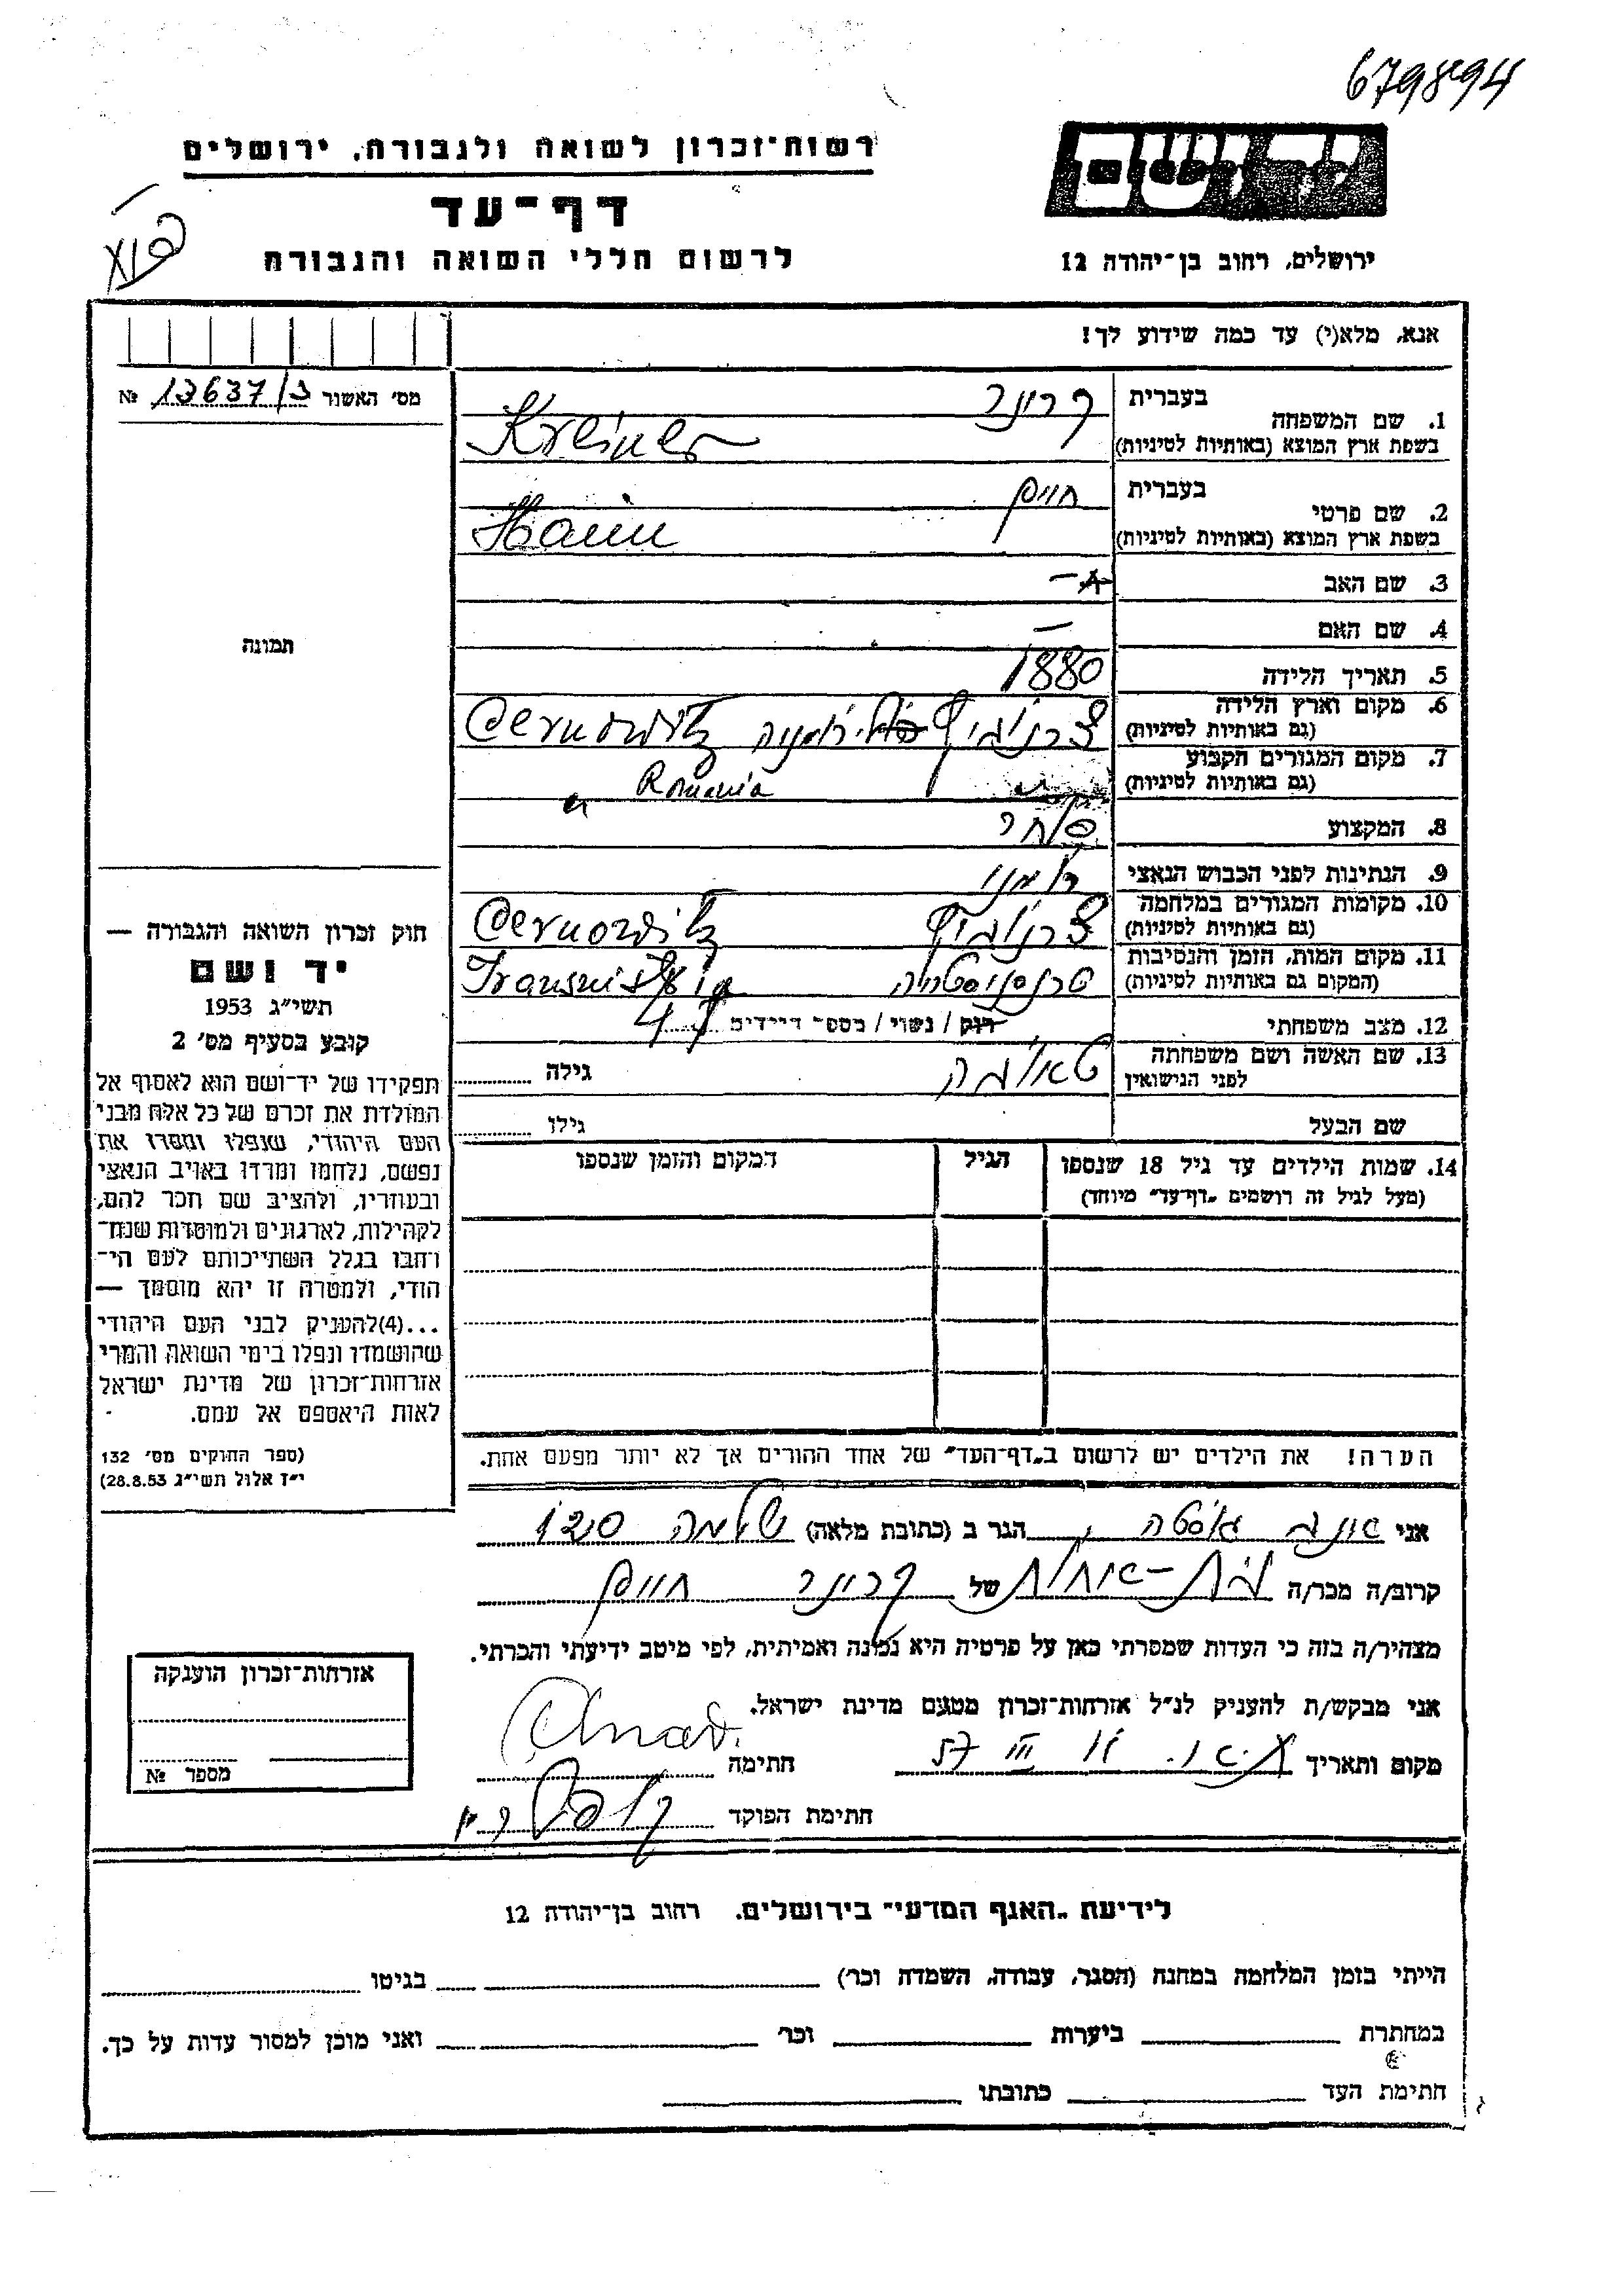 679894
רשות־זכרון לשואה ולגבורה, ירושלים
יד ושם
דף־עד
לרשום חללי השואה והגבורה
ירושלים, רחוב בן־יהודה 12
אנא, מלא(י) עד כמה שידוע לך!
מס׳ האשור 13637/ג №
1. שם המשפחה
בעברית קרוינר
בשפת ארץ המוצא (באותיות לטיניות) Kreiner
2. שם פרטי
בעברית חיים
בשפת ארץ המוצא (באותיות לטיניות) Haim
3. שם האב —
4. שם האם —
תמונה
5. תאריך הלידה 1880
6. מקום וארץ הלידה
(גם באותיות לטיניות) צרנוביץ רומניה Cernowitz
7. מקום המגורים הקבוע
(גם באותיות לטיניות) Romania
8. המקצוע סוחר
9. הנתינות לפני הכבוש הנאצי רומני
10. מקומות המגורים במלחמה
(גם באותיות לטיניות) צרנוביץ Cernowitz
11. מקום המות, הזמן והנסיבות
(המקום גם באותיות לטיניות) טרנסניסטריה Transnistria
12. מצב משפחתי רווק / נשוי / מספר הילדים 4
13. שם האשה ושם משפחתה
לפני הנישואין
גילה
שם הבעל גילו
14. שמות הילדים עד גיל 18 שנספו
(מעל לגיל זה רושמים „דף־עד” מיוחד)
הגיל
המקום והזמן שנספו
חוק זכרון השואה והגבורה —
יד ושם
תשי״ג 1953
קובע בסעיף מס׳ 2
תפקידו של יד־ושם הוא לאסוף אל
המולדת את זכרם של כל אלה מבני
העם היהודי, שנפלו ומסרו את
נפשם, נלחמו ומרדו באויב הנאצי
ובעוזריו, ולהציב שם וזכר להם,
לקהילות, לארגונים ולמוסדות שנח־
רחבו בגלל השתייכותם לעם הי־
הודי, ולמטרה זו יהא מוסמך —
...(4)להעניק לבני העם היהודי
שהושמדו ונפלו בימי השואה והמרי
אזרחות־זכרון של מדינת ישראל
לאות היאספם אל עמם.
(ספר החוקים מס׳ 132
י״ז אלול תשי״ג 28.8.53)
הערה! את הילדים יש לרשום ב„דף־העד” של אחד ההורים אך לא יותר מפעם אחת.
אני הגר ב (כתובת מלאה)
קרוב/ה מכר/ה בת־אחות של קרוינר חיים
מצהיר/ה בזה כי העדות שמסרתי כאן על פרטיה היא נכונה ואמיתית, לפי מיטב ידיעתי והכרתי.
אני מבקש/ת להעניק לנ״ל אזרחות־זכרון מטעם מדינת ישראל.
מקום ותאריך III 57 חתימה
חתימת הפוקד
אזרחות־זכרון הוענקה
מספר №
לידיעת „האגף המדעי” בירושלים. רחוב בן־יהודה 12
הייתי בזמן המלחמה במחנה (הסגר, עבודה, השמדה וכו׳) בגיטו
במחתרת ביערות וכו׳ ואני מוכן למסור עדות על כך.
חתימת העד כתובתו